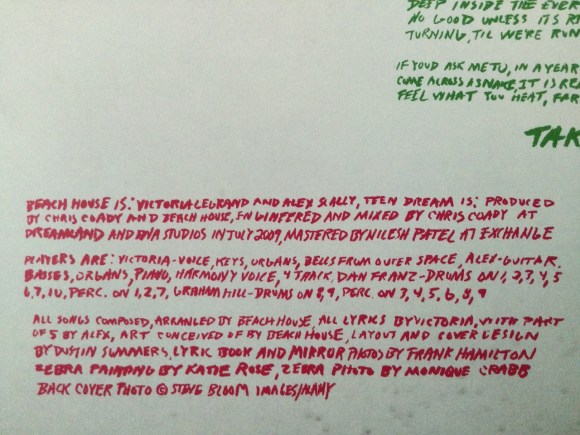 DEEP INSIDE THE EVER
NO GOOD UNLESS ITS R
TURNING, TIL WE'RE RUN
IF YOUD ASK ME TO, IN A YEAR
COME ACROSS A SNAKE, IT IS RE
FEEL WHAT YOU HEAT, FAR
TAK
BEACH HOUSE IS: VICTORIA LEGRAND AND ALEX SCALLY, TEEN DREAM IS: PRODUCED
BY CHRIS COADY AND BEACH HOUSE, ENGINEERED AND MIXED BY CHRIS COADY AT
DREAMLAND AND DNA STUDIOS IN JULY 2009, MASTERED BY NILESH PATEL AT EXCHANGE
PLAYERS ARE: VICTORIA-VOICE, KEYS, ORGANS, BELLS FROM OUTER SPACE, ALEX-GUITAR,
BASSES, ORGANS, PIANO, HARMONY VOICE, 4 TRACK, DAN FRANZ-DRUMS ON 1, 2, 3, 4, 5
6, 7, 10, PERC. ON 1, 2, 7, GRAHAM HILL-DRUMS ON 8, 9, PERC. ON 3, 4, 5, 6, 8, 9
ALL SONGS COMPOSED, ARRANGED BY BEACH HOUSE ALL LYRICS BY VICTORIA, WITH PART
OF 5 BY ALEX, ART CONCEIVED OF BY BEACH HOUSE, LAYOUT AND COVER DESIGN
BY DUSTIN SUMMERS, LYRIC BOOK AND MIRROR PHOTOS BY FRANK HAMILTON
ZEBRA PAINTING BY KATIE ROSE, ZEBRA PHOTO BY MONIQUE CRABB
BACK COVER PHOTO © STEVE BLOOM IMAGES/ALAMY